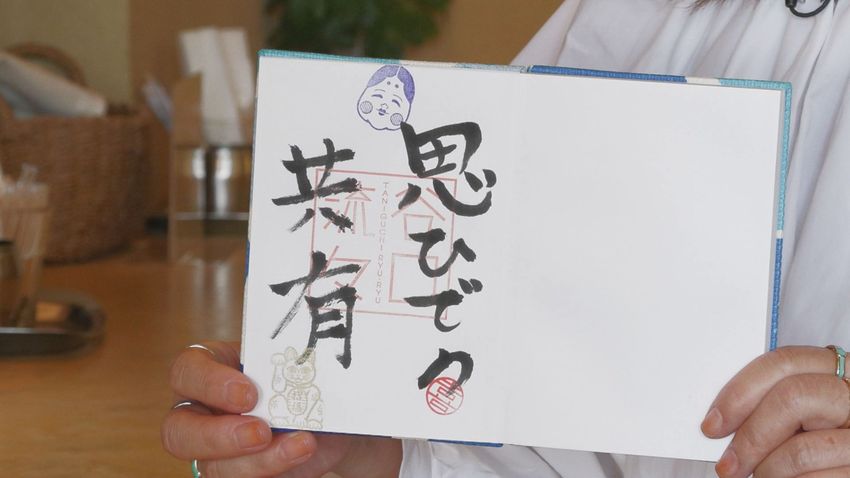 思ひでの
共有
谷口
TANIGUCHI RYU-RYU